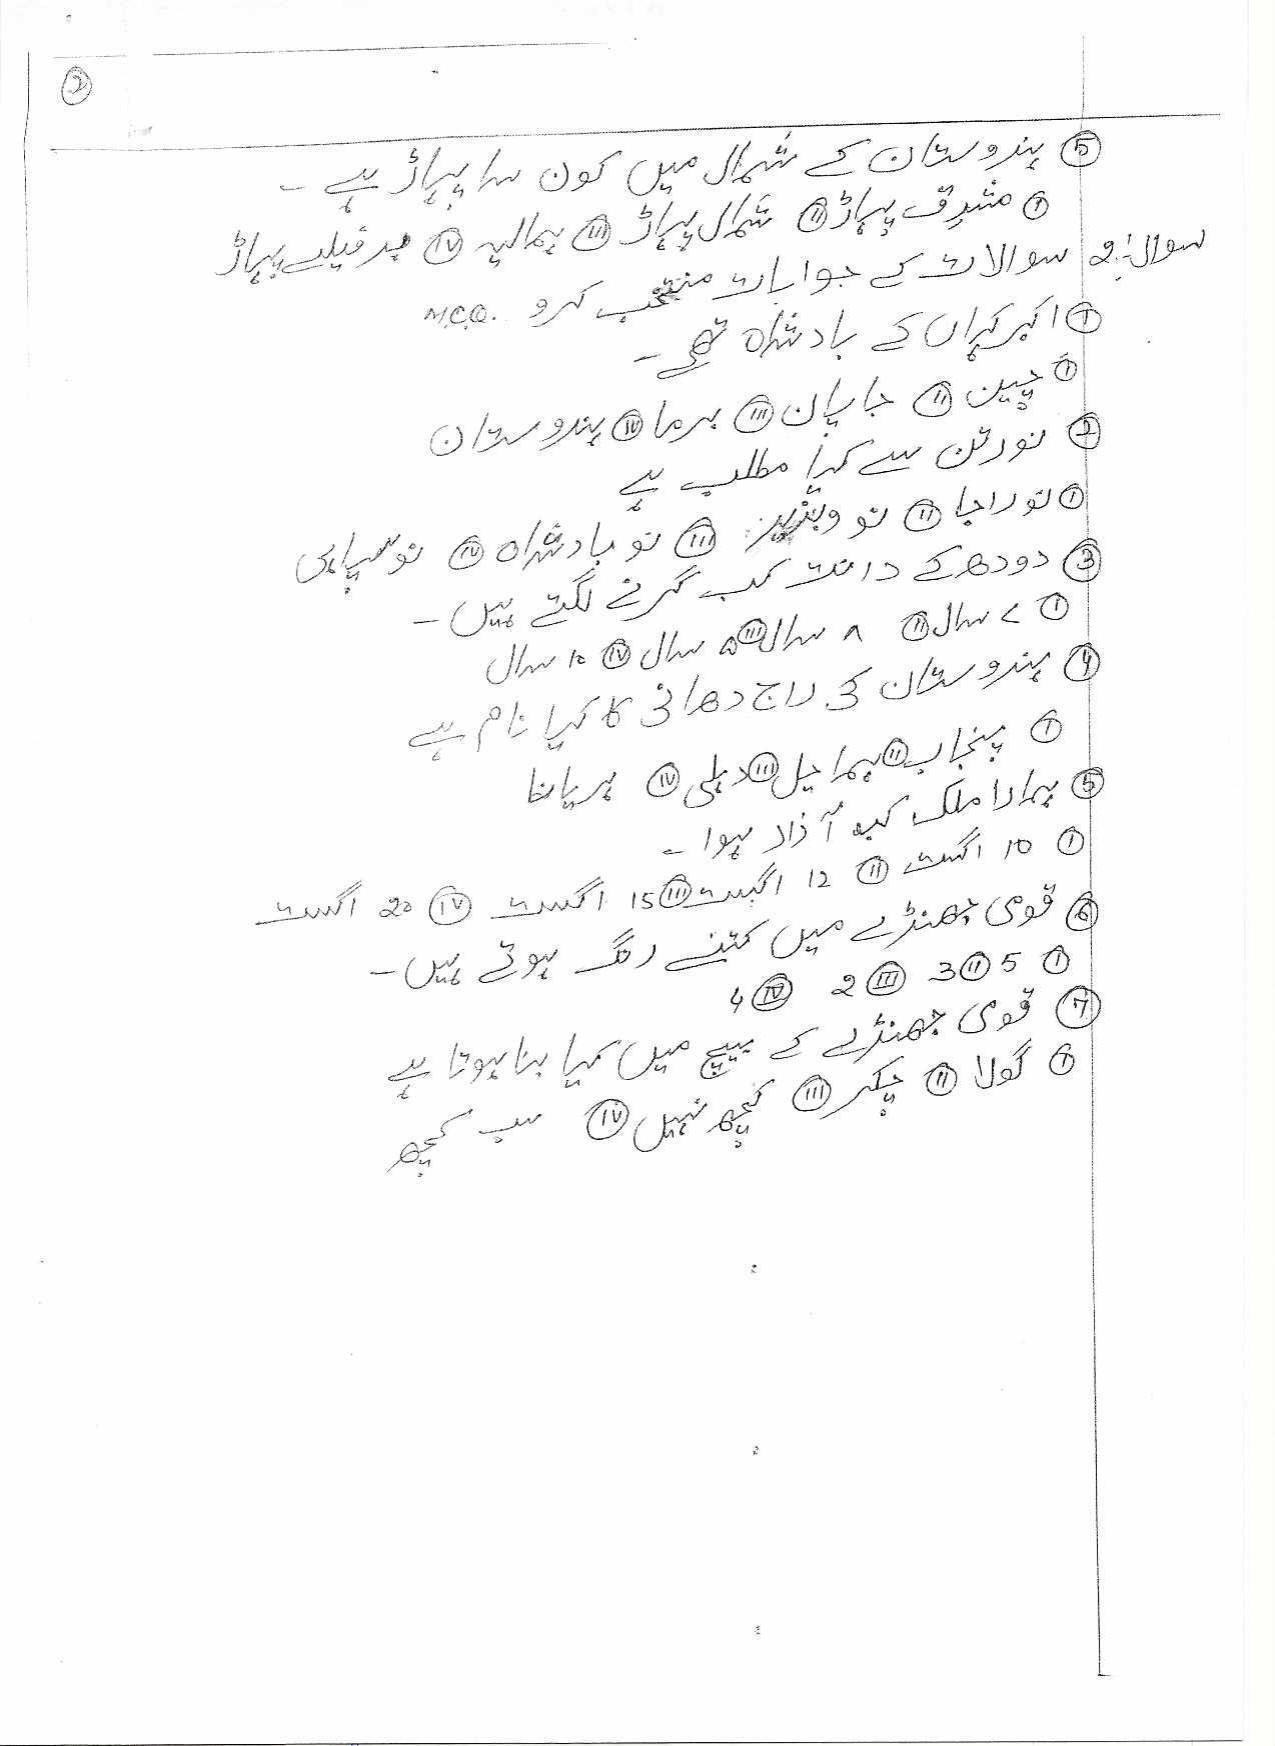 ②
⑤ ہندوستان کے شمال میں کون سا پہاڑ ہے ۔
Ⓘ مشرق پہاڑ Ⓘⓘ شمال پہاڑ ⓘⓘⓘ ہمالیہ ⓘⓥ برفیلے پہاڑ
سوال:2 سوالات کے جوابات منتخب کرو M.C.Q.
① اکبر کہاں کے بادشاہ تھے ۔
(I) چین (II) جاپان (III) برما (IV) ہندوستان
② نورتن سے کیا مطلب ہے
(I) نو راجا (II) نو وزیر (III) نو بادشاہ (IV) نو سپاہی
③ دودھ کے دانت کب گرنے لگتے ہیں ۔
(I) ۷ سال (II) ۸ سال (III) ۵ سال (IV) ۱۰ سال
④ ہندوستان کی راج دھانی کا کیا نام ہے
(I) پنجاب (II) ہماچل (III) دہلی (IV) ہریانا
⑤ ہمارا ملک کب آزاد ہوا ۔
(I) 10 اگست (II) 12 اگست (III) 15 اگست (IV) 20 اگست
⑥ قومی جھنڈے میں کتنے رنگ ہوتے ہیں ۔
(I) 5 (II) 3 (III) 2 (IV) 4
⑦ قومی جھنڈے کے بیچ میں کیا بنا ہوتا ہے
(I) گولا (II) چکر (III) کچھ نہیں (IV) سب کچھ